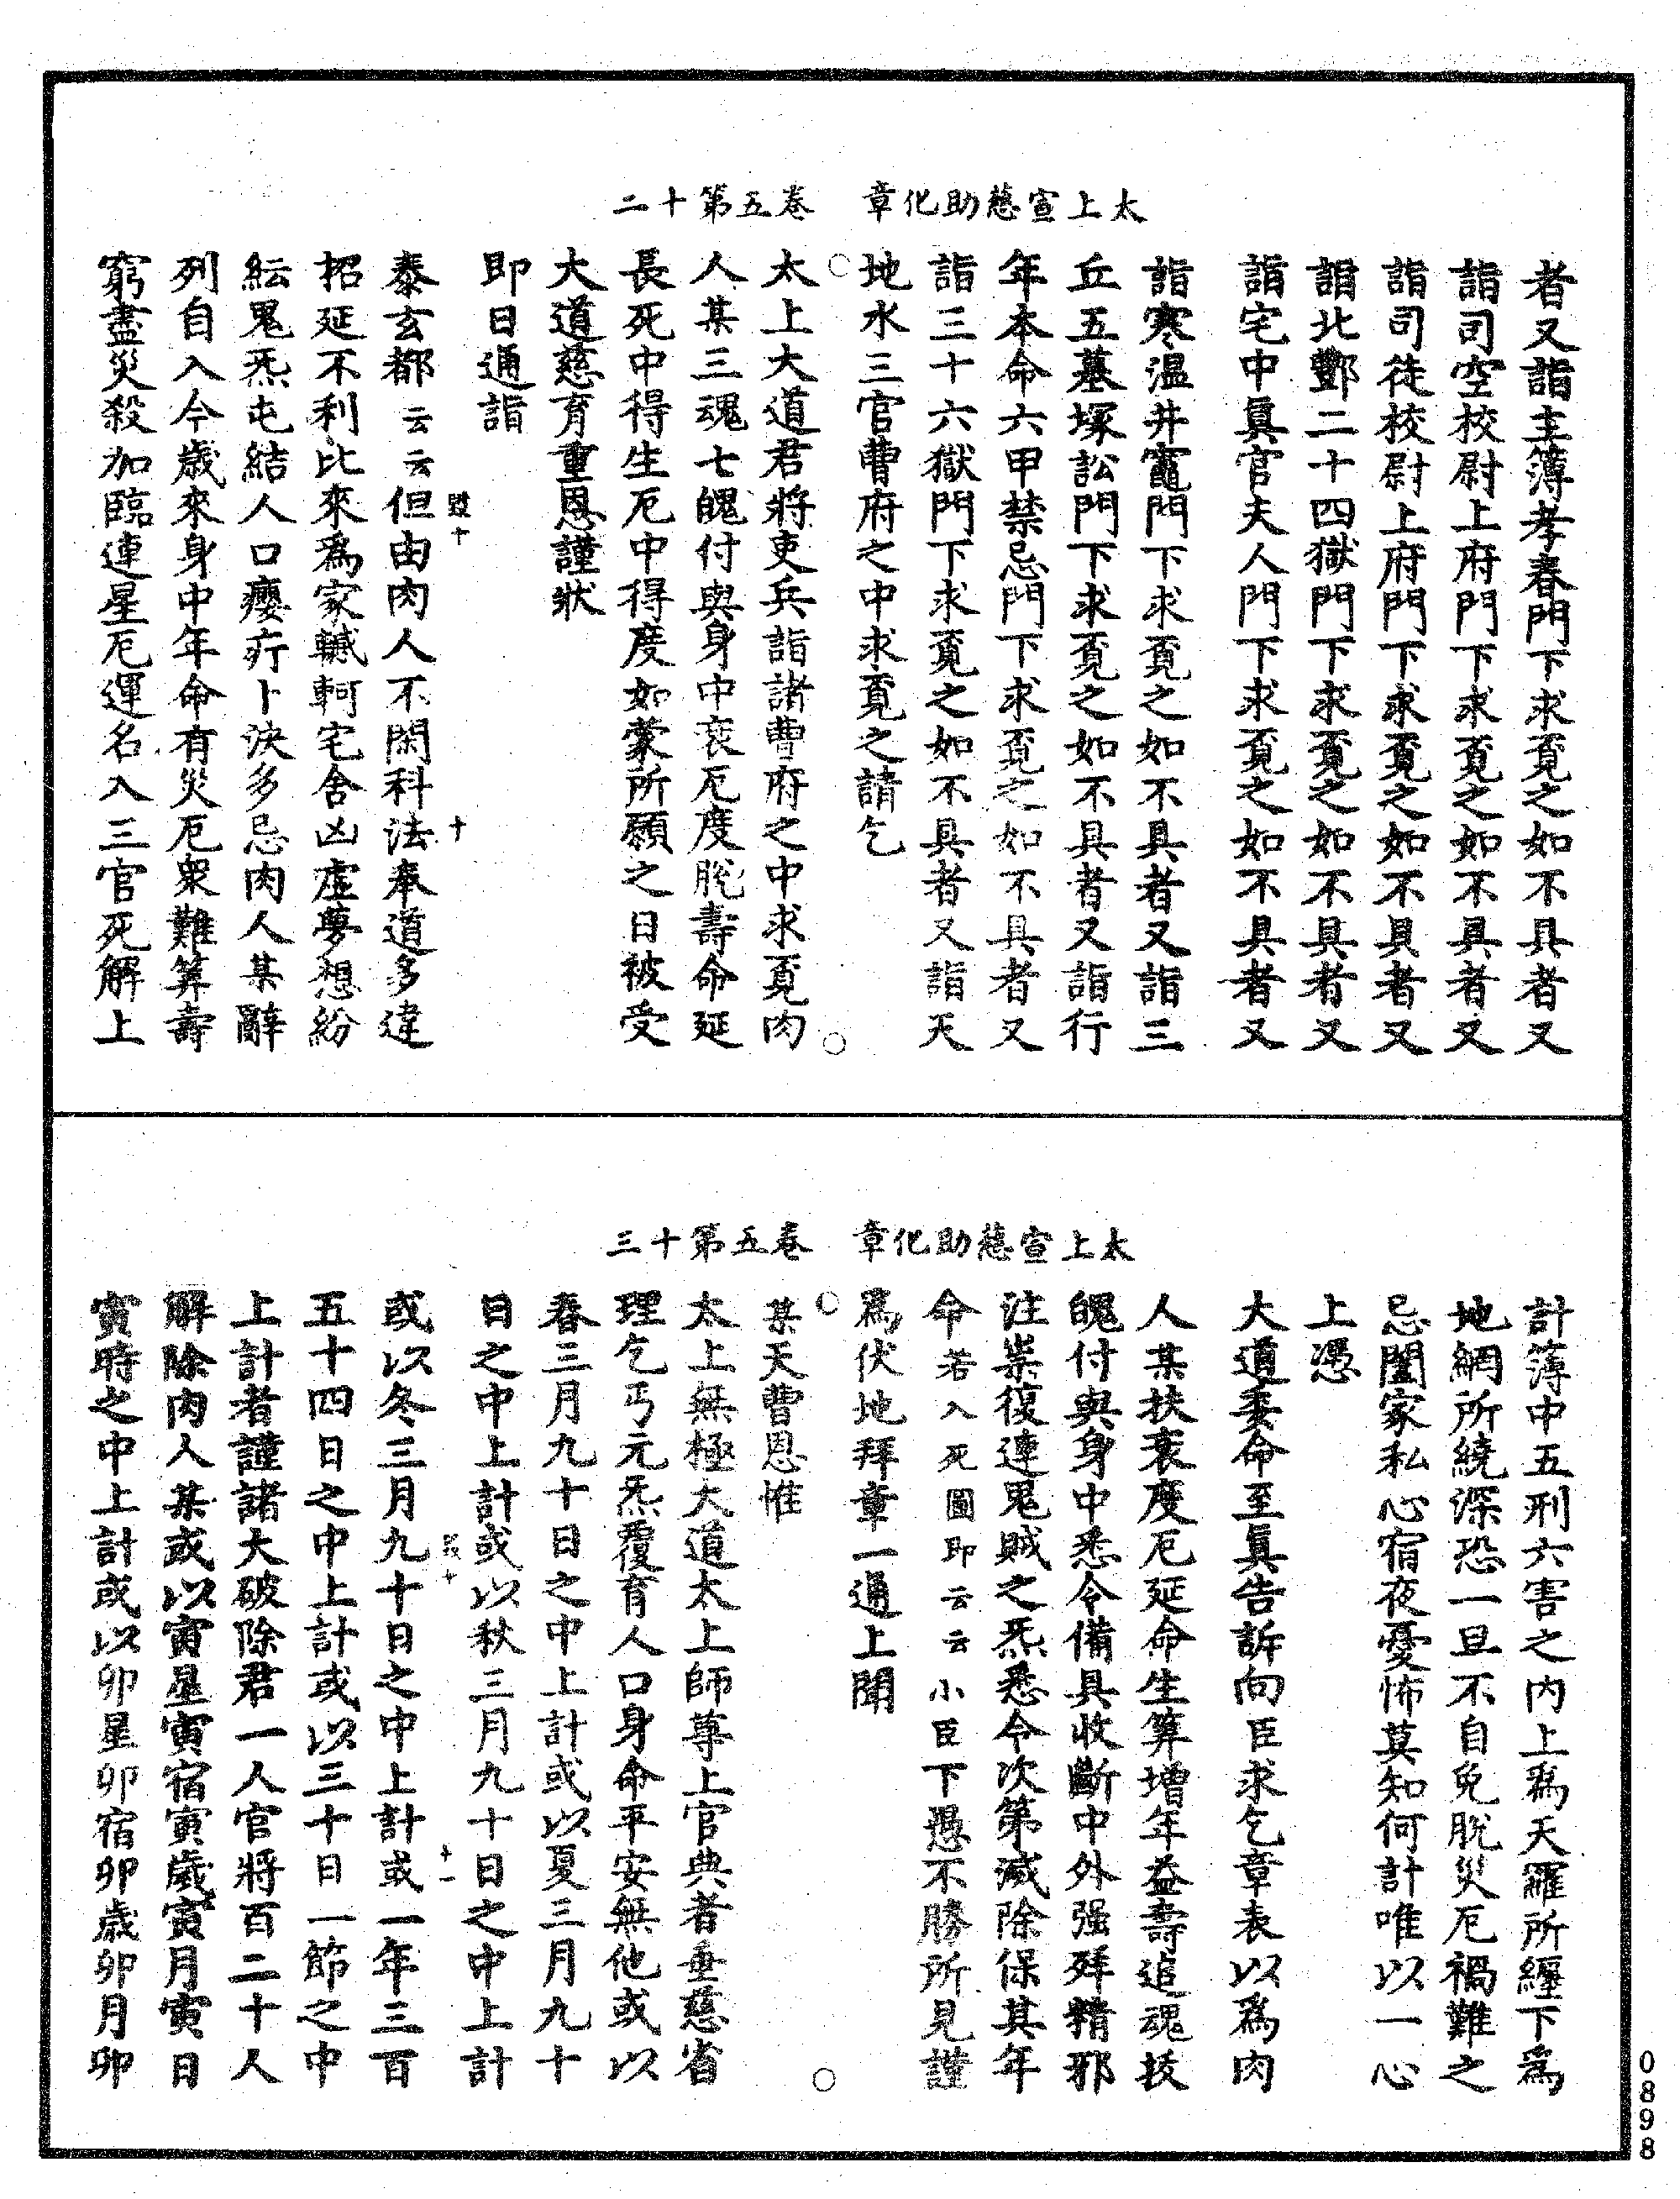 太上宣慈助化章　卷五第十二
者又詣主簿孝春門下求覔之如不具者又
詣司空校尉上府門下求覔之如不具者又
詣司徒校尉上府門下求覔之如不具者又
詣北酆二十四獄門下求覔之如不具者又
詣宅中眞官夫人門下求覔之如不具者又
詣寒溫井竈門下求覔之如不具者又詣三
丘五墓塚訟門下求覔之如不具者又詣行
年本命六甲禁忌門下求覔之如不具者又
詣三十六獄門下求覔之如不具者又詣天
地水三官曹府之中求覔之請乞
太上大道君將吏兵詣諸曹府之中求覔肉
人某三魂七魄付與身中衰厄度脫壽命延
長死中得生厄中得度如蒙所願之日被受
大道慈育重恩謹狀
即日通詣
泰玄都云云但由肉人不閑科法奉道多違
招延不利比來爲家轗軻宅舍凶虛夢想紛
紜鬼炁屯結人口癭疔卜決多忌肉人某辭
列自入今歲來身中年命有災厄衆難筭壽
窮盡災殺加臨連星厄運名入三官死解上
太上宣慈助化章　卷五第十三
計簿中五刑六害之內上爲天羅所纏下爲
地網所繞深恐一旦不自免脫災厄禍難之
忌闔家私心宿夜憂怖莫知何計唯以一心
上憑
大道委命至眞告訴向臣求乞章表以爲肉
人某扶衰度厄延命生筭增年益壽追魂拔
魄付與身中悉令備具收斷中外强殍精邪
注祟復連鬼賊之炁悉令次第滅除保其年
命若入死圖即云云小臣下愚不勝所見謹
爲伏地拜章一通上聞
某天曹恩惟
太上無極大道太上師尊上官典者垂慈省
理乞丐元炁覆育人口身命平安無他或以
春三月九十日之中上計或以夏三月九十
日之中上計或以秋三月九十日之中上計
或以冬三月九十日之中上計或一年三百
五十四日之中上計或以三十日一節之中
上計者謹請大破除君一人官將百二十人
解除肉人某或以寅星寅宿寅歲寅月寅日
寅時之中上計或以卯星卯宿卯歲卯月卯
0898